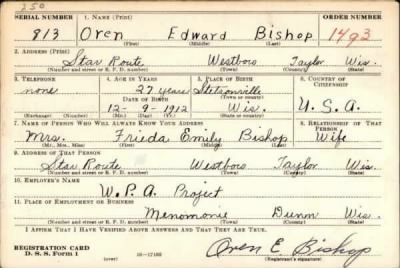 250
SERIAL NUMBER 1. NAME (Print) ORDER NUMBER
813 Oren Edward Bishop 1493
(First) (Middle) (Last)
2. ADDRESS (Print)
Star Route Westboro Taylor Wis.
(Number and street or R. F. D. number) (Town) (County) (State)
3. TELEPHONE 4. AGE IN YEARS 5. PLACE OF BIRTH 6. COUNTRY OF CITIZENSHIP
none 27 years Stetsonville
DATE OF BIRTH (Town or county)
12-9-1912 Wis. U.S.A.
(Exchange) (Number) (Mo.) (Day) (Yr.) (State or country)
7. NAME OF PERSON WHO WILL ALWAYS KNOW YOUR ADDRESS 8. RELATIONSHIP OF THAT PERSON
Mrs. Frieda Emily Bishop Wife
(Mr., Mrs., Miss) (First) (Middle) (Last)
9. ADDRESS OF THAT PERSON
Star Route Westboro Taylor Wis.
(Number and street or R. F. D. number) (Town) (County) (State)
10. EMPLOYER'S NAME
W.P.A. Project
11. PLACE OF EMPLOYMENT OR BUSINESS
Menomonie Dunn Wis.
(Number and street or R. F. D. number) (Town) (County) (State)
I AFFIRM THAT I HAVE VERIFIED ABOVE ANSWERS AND THAT THEY ARE TRUE.
REGISTRATION CARD
D. S. S. Form 1 (over) Oren E. Bishop
(Registrant's signature)